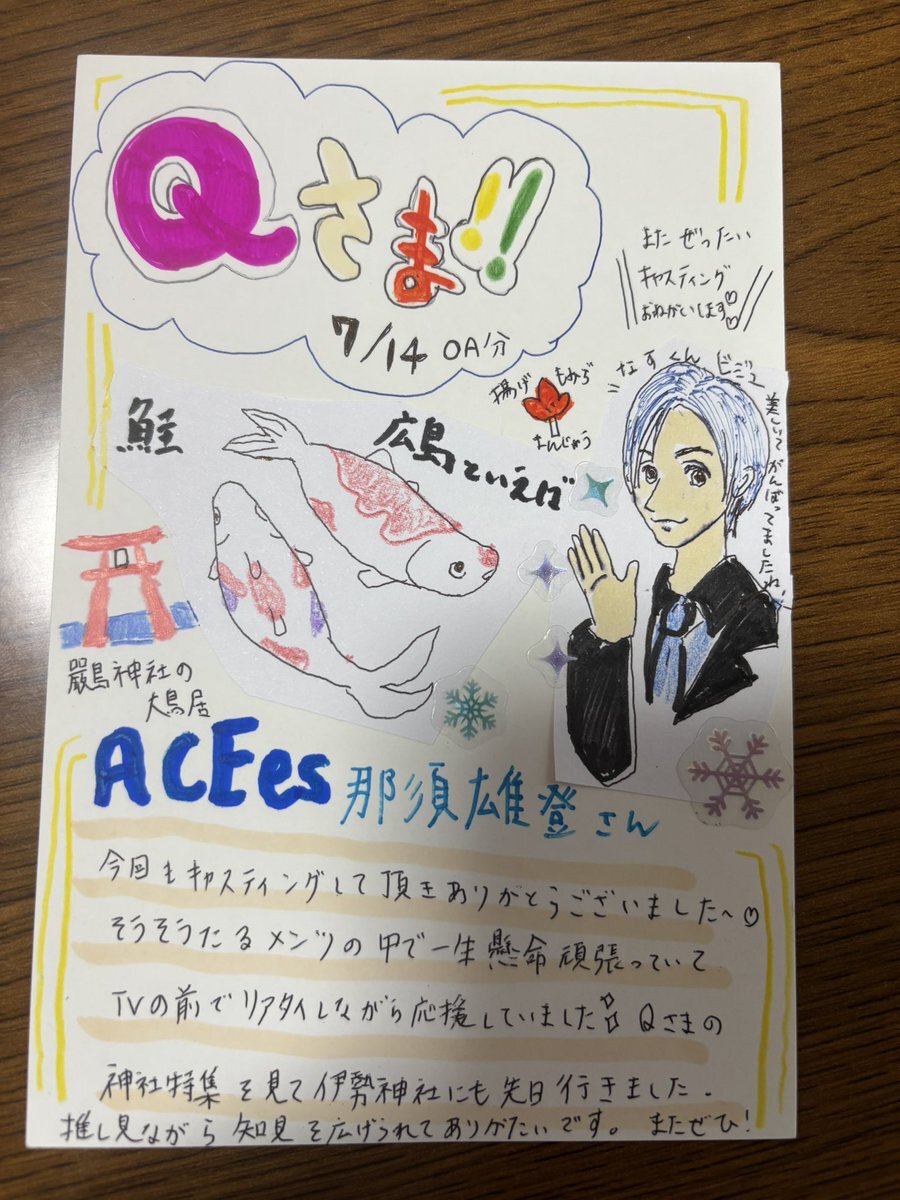 Qさま!!
7/14 OA分
また ぜったい
キャスティング
おねがいします♡♡
なすくん ビジュ
美しくて がんばってましたね!
揚げ もみぢ
まんじゅう
鮭
広島といえば
嚴島神社の
大鳥居
ACEes 那須雄登さん
今回もキャスティングして頂きありがとうございました〜♡
そうそうたるメンツの中で一生懸命頑張っていて
TVの前でリアタイしながら応援していました Qさまの
神社特集を見て伊勢神社にも先日行きました.
推し見ながら知見を広げられてありがたいです。またぜひ!